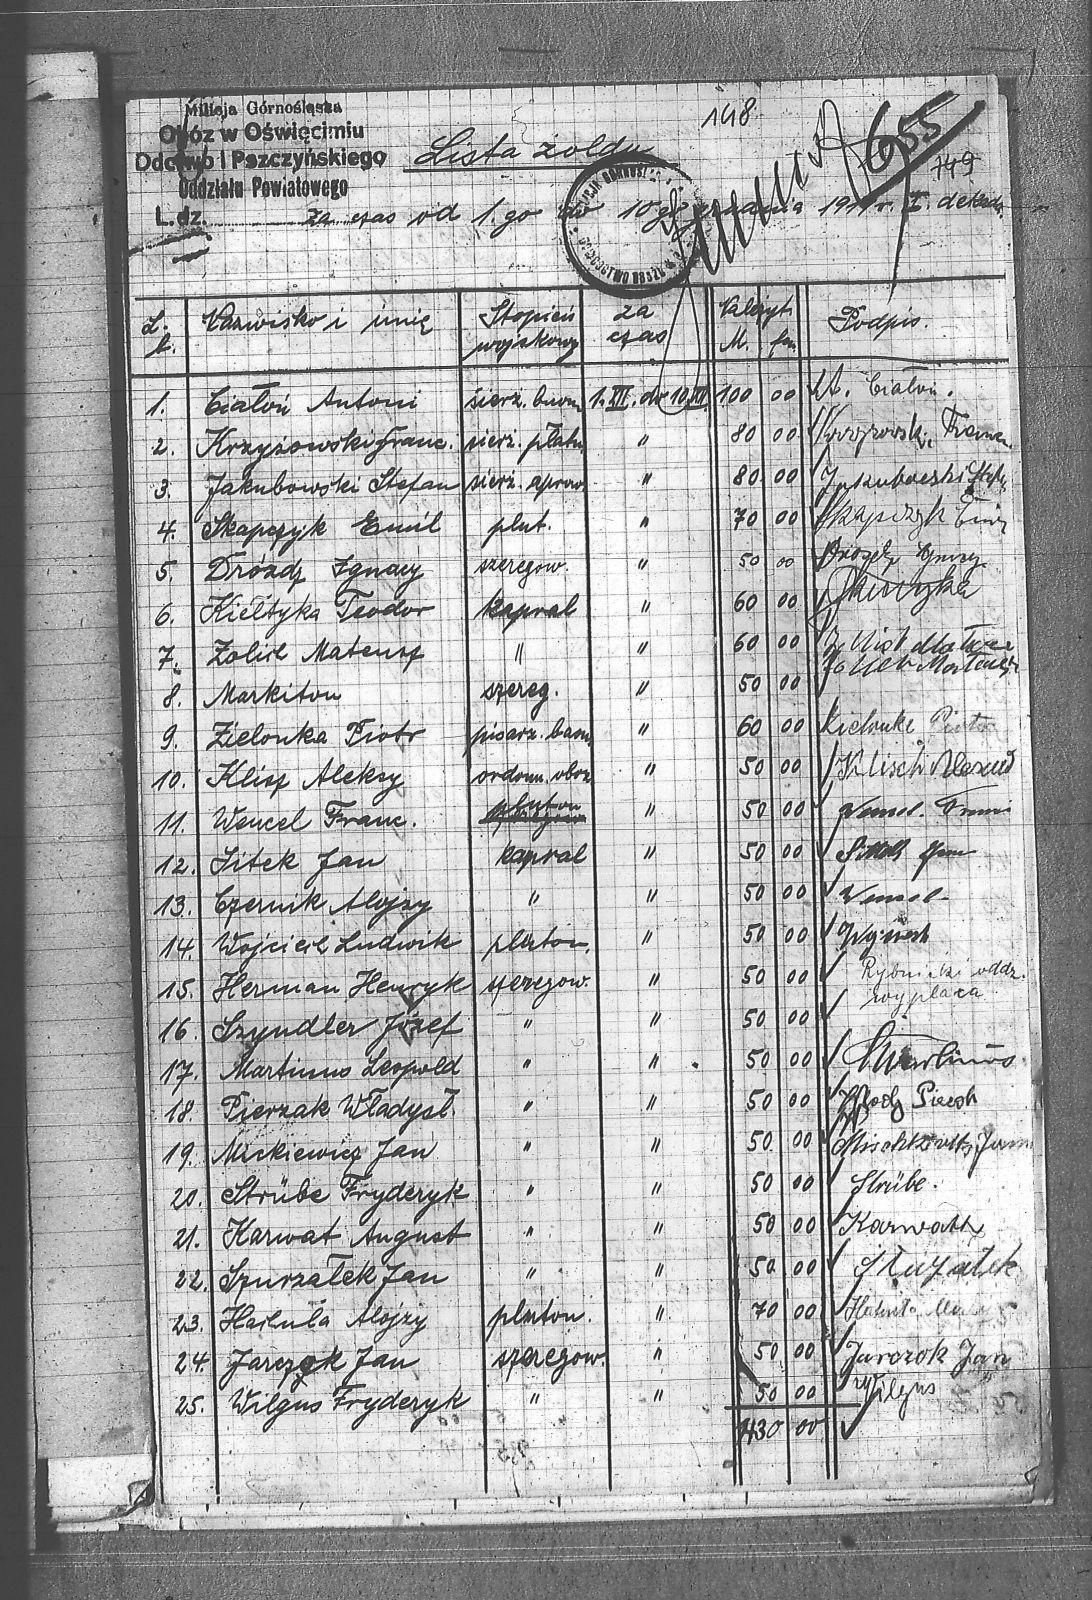 Milicja Górnośląska
Obóz w Oświęcimiu
Odctwo I Pszczyńskiego
Oddziału Powiatowego
L. dz.
148
655
749
Lista żołdu
za czas od 1.go do 10 go grudnia 19 r. I. dekada
L. b. Nazwisko i imię Stopień wojskowy za czas Należyt. M. fen. Podpis.
1. Ciałoń Antoni sierż. 1.XII. do 10.XII. 100 00 A. Ciałoń.
2. Krzyżowski Franc. sierż. płatn. " 80 00
3. Jakubowski Stefan sierż. aprow. " 80 00 Jakubowski
4. Skapczyk Emil plut. " 70 00 Skapczyk Emil
5. Dróżdż Ignacy szeregow. " 50 00
6. Kiełtyka Teodor kapral " 60 00 Kiełtyka
7. Żolich Mateusz " " 60 00
8. Markiton szereg. " 50 00
9. Zielonka Piotr pisarz. " 60 00 Zielonka Piotr
10. Klisz Aleksy ordon. oboz. " 50 00 Klisch
11. Wencel Franc. pluton " 50 00 Wencel
12. Sitek Jan kapral " 50 00
13. Czernik Alojzy " " 50 00
14. Wojciech Ludwik pluton. " 50 00
15. Herman Henryk szeregow. " 50 00 Rybnicki oddz.
wypłaca
16. Szyndler Józef " " 50 00
17. Martinus Leopold " " 50 00 Martinus
18. Pierzak Władysł. " " 50 00
19. Mickiewicz Jan " " 50 00
20. Strübe Fryderyk " " 50 00 Strübe.
21. Karwat August " " 50 00 Karwath
22. Szurzałek Jan " " 50 00
23. Hachuła Alojzy pluton. " 70 00
24. Jarczok Jan szeregow. " 50 00 Jarczok Jan
25. Wilgus Fryderyk " " 50 00 Wilgus
1430 00